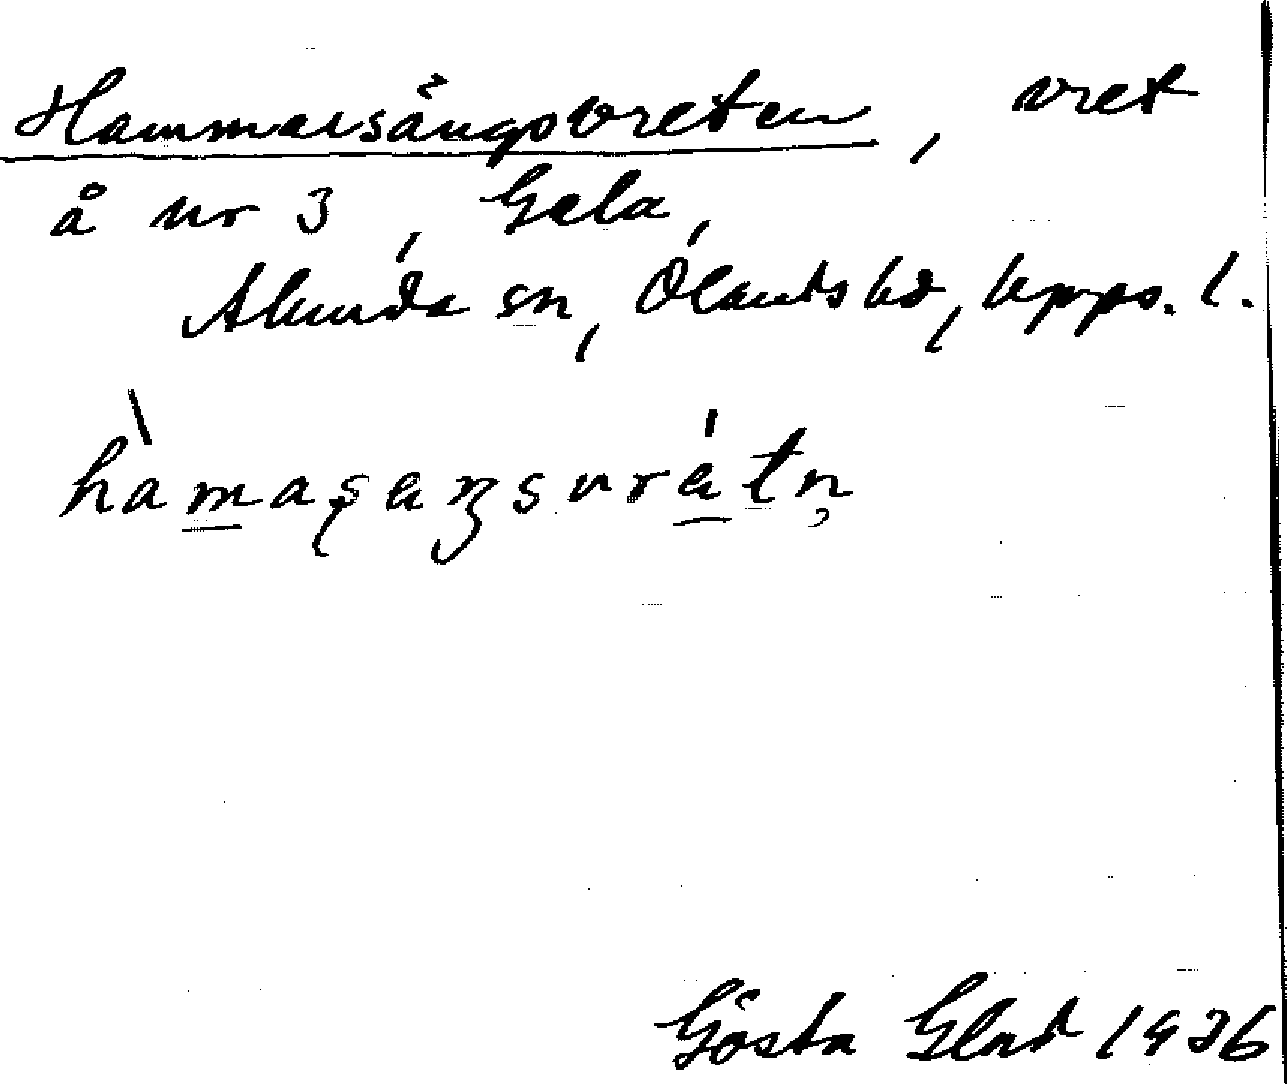 Hammarsängsvreten, vret
å nr 3, Gela,
Alunda sn, Ölands hd, Upps. l.
hàmaʂæŋsvrǽtn̥
Gösta Glad 1936